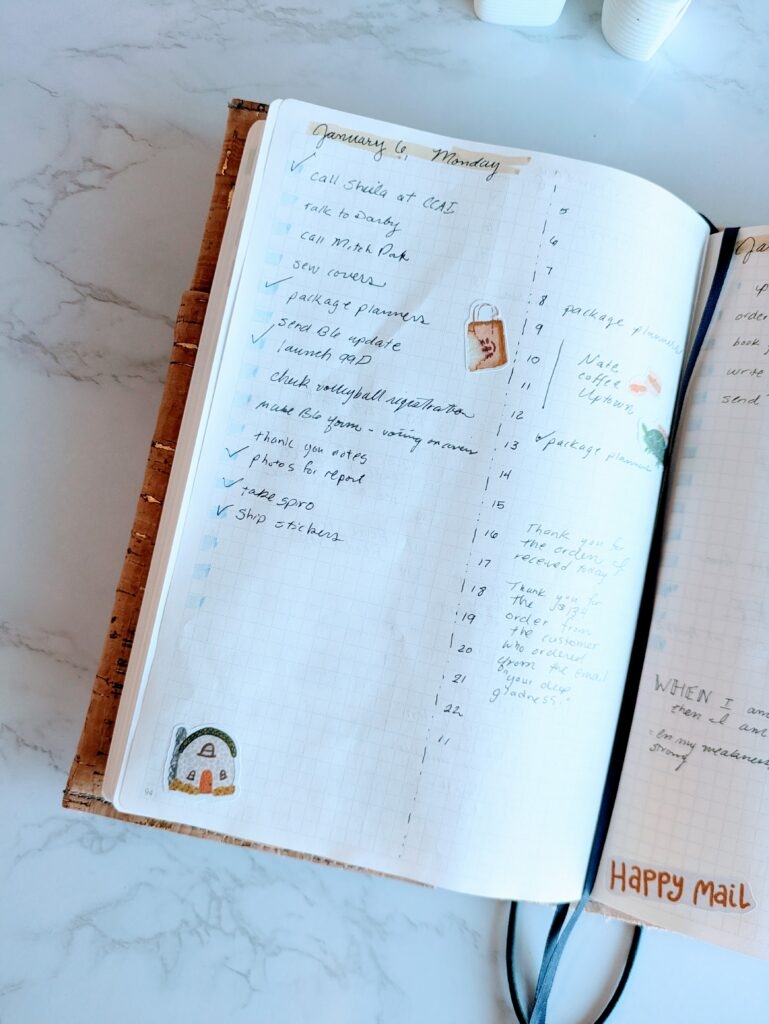 January 6, Monday
✓
call Sheila at CCAI
talk to Darby
call Mitch Pak
sew covers
✓ package planners
send B6 update
✓ launch 99D
check volleyball registration
make B6 form - voting on covers
thank you notes
✓ photos for report
✓ take spiro
✓ ship stickers
94
5
6
7
8 package planners
9
10 Nate
coffee
11 Uptown
12
13 ✓ package planner
14
15
16 Thank you for
the orders I
17 received today
18 Thank you for
the $134
19 order from
the customer
20 who ordered
from the email
21 "your deep
gladness."
22
11
Ja
up
order
book
write
send
WHEN I am
then I am
-In my weakness
strong
HAPPY MAIL